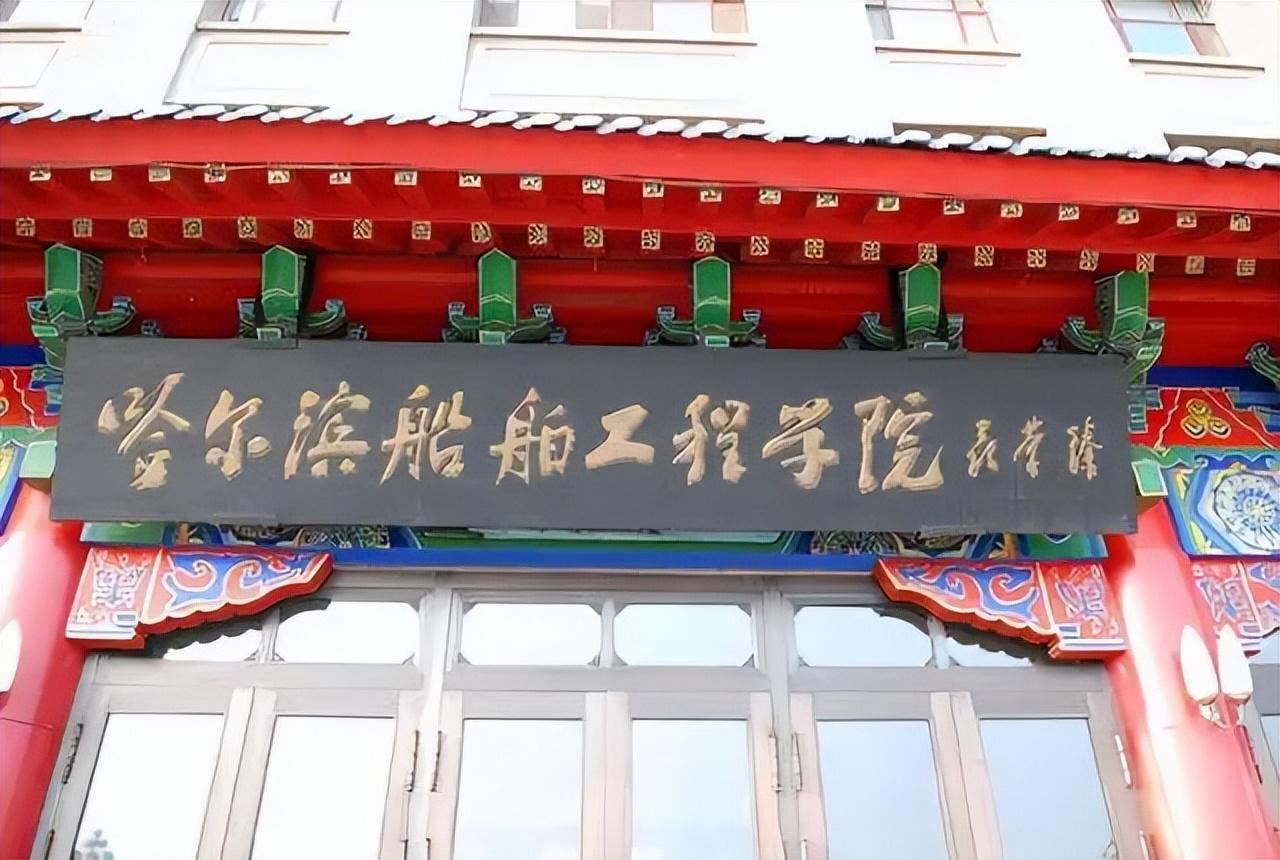 哈尔滨船舶工程学院 聂荣臻